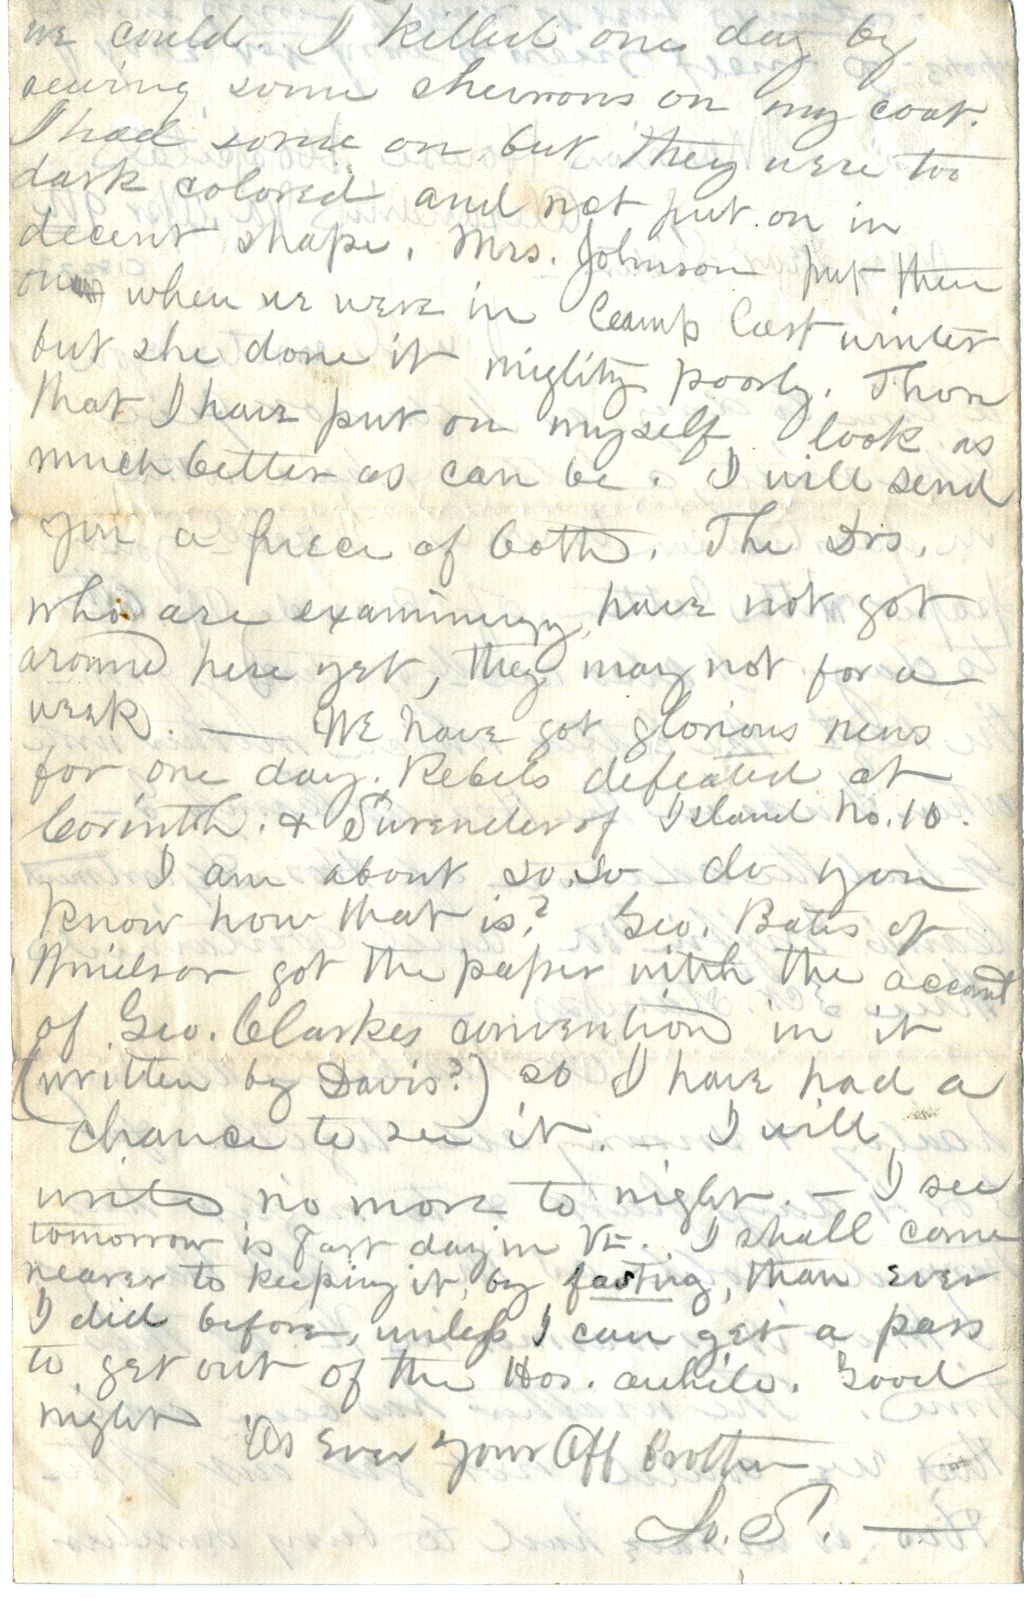 we could. I killed one day by
sewing some chevrons on my coat.
I had some on but they were too
dark colored and not put on in
decent shape. Mrs. Johnson put them
on when we were in Camp last winter
but she done it mighty poorly. Thos
that I have put on myself look as
much better as can be. I will send
you a piece of both. The Drs.
who are examining, have not got
around here yet, they may not for a
week. — We have got glorious news
for one day. Rebels defeated at
Corinth. & Surender of Island No. 10.
I am about so, so - do you
know how that is? Geo. Bates of
Windsor got the paper with the account
of Geo. Clarkes convention in it
(written by Davis?) so I have had a
chance to see it. I will
write no more to night. — I see
tomorrow is Fast day in Vt. I shall come
nearer to keeping it, by fasting, than ever
I did before, unless I can get a pass
to get out of the Hos. awhile. Good
night
As Ever Your Aff Brother